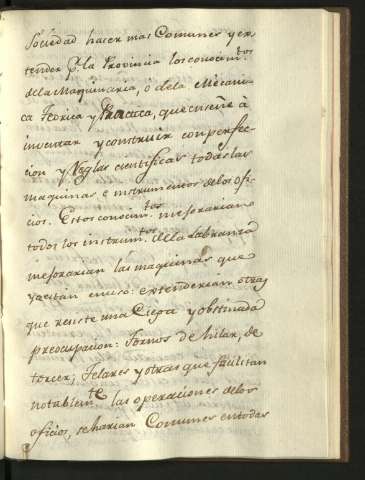 Sociedad hacer mas Comunes y ex
tender pr. la Provincia los conocim.tos
de la Maquinaria, ò de la Mecani
ca Teórica y Practica, que enseñe à
inventar y construir con perfec-
cion y Reglas cientificas todas las
maquinas è instrumentos de los ofi-
cios. Estos conocim.tos mejorarian
todos los instrum.tos de la Labranza
mejorarian las maquinas que
ya están en uso: extenderian otras
que resiste una Ciega y obstinada
preocupacion: Tornos de hilar, de
torcer, Telares y otras que facilitan
notablem.te las operaciones de los
oficios, se harian Comunes en todas